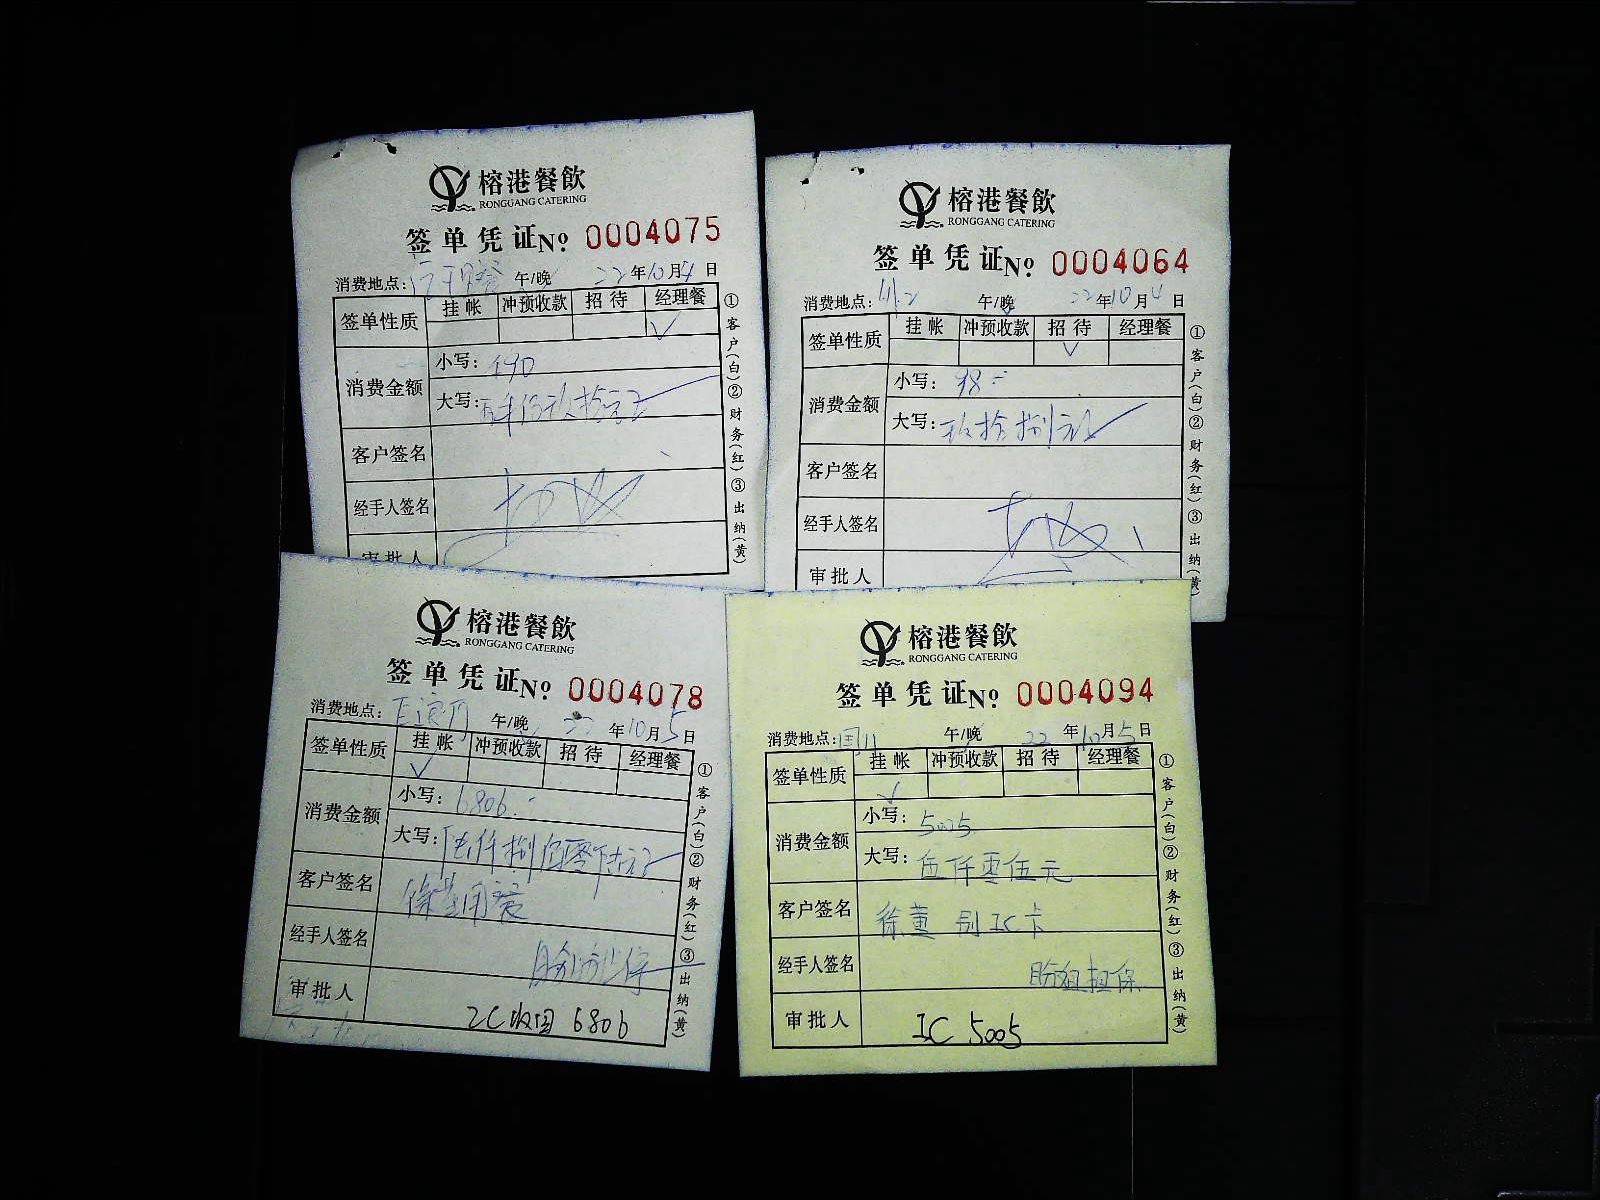 榕港餐飲
RONGGANG CATERING
签单凭证 No 0004075
消费地点: 午/晚 22年10月4日
签单性质 挂帐 冲预收款 招待 经理餐
√
消费金额 小写:
大写:
客户签名
经手人签名
审批人
①客户(白)②财务(红)③出纳(黄)
榕港餐飲
RONGGANG CATERING
签单凭证 No 0004064
消费地点: 午/晚 22年10月4日
签单性质 挂帐 冲预收款 招待 经理餐
√
消费金额 小写: 98
大写: 玖拾捌元
客户签名
经手人签名
审批人
①客户(白)②财务(红)③出纳(黄)
榕港餐飲
RONGGANG CATERING
签单凭证 No 0004078
消费地点: 午/晚 22年10月5日
签单性质 挂帐 冲预收款 招待 经理餐
√
消费金额 小写: 6806
大写: 陆仟捌佰零陆元
客户签名 徐董
经手人签名
审批人 IC收回 6806
①客户(白)②财务(红)③出纳(黄)
榕港餐飲
RONGGANG CATERING
签单凭证 No 0004094
消费地点: 午/晚 22年10月5日
签单性质 挂帐 冲预收款 招待 经理餐
√
消费金额 小写: 5005
大写: 伍仟零伍元
客户签名 徐董 刷IC卡
经手人签名 盼姐担保
审批人 IC 5005
①客户(白)②财务(红)③出纳(黄)